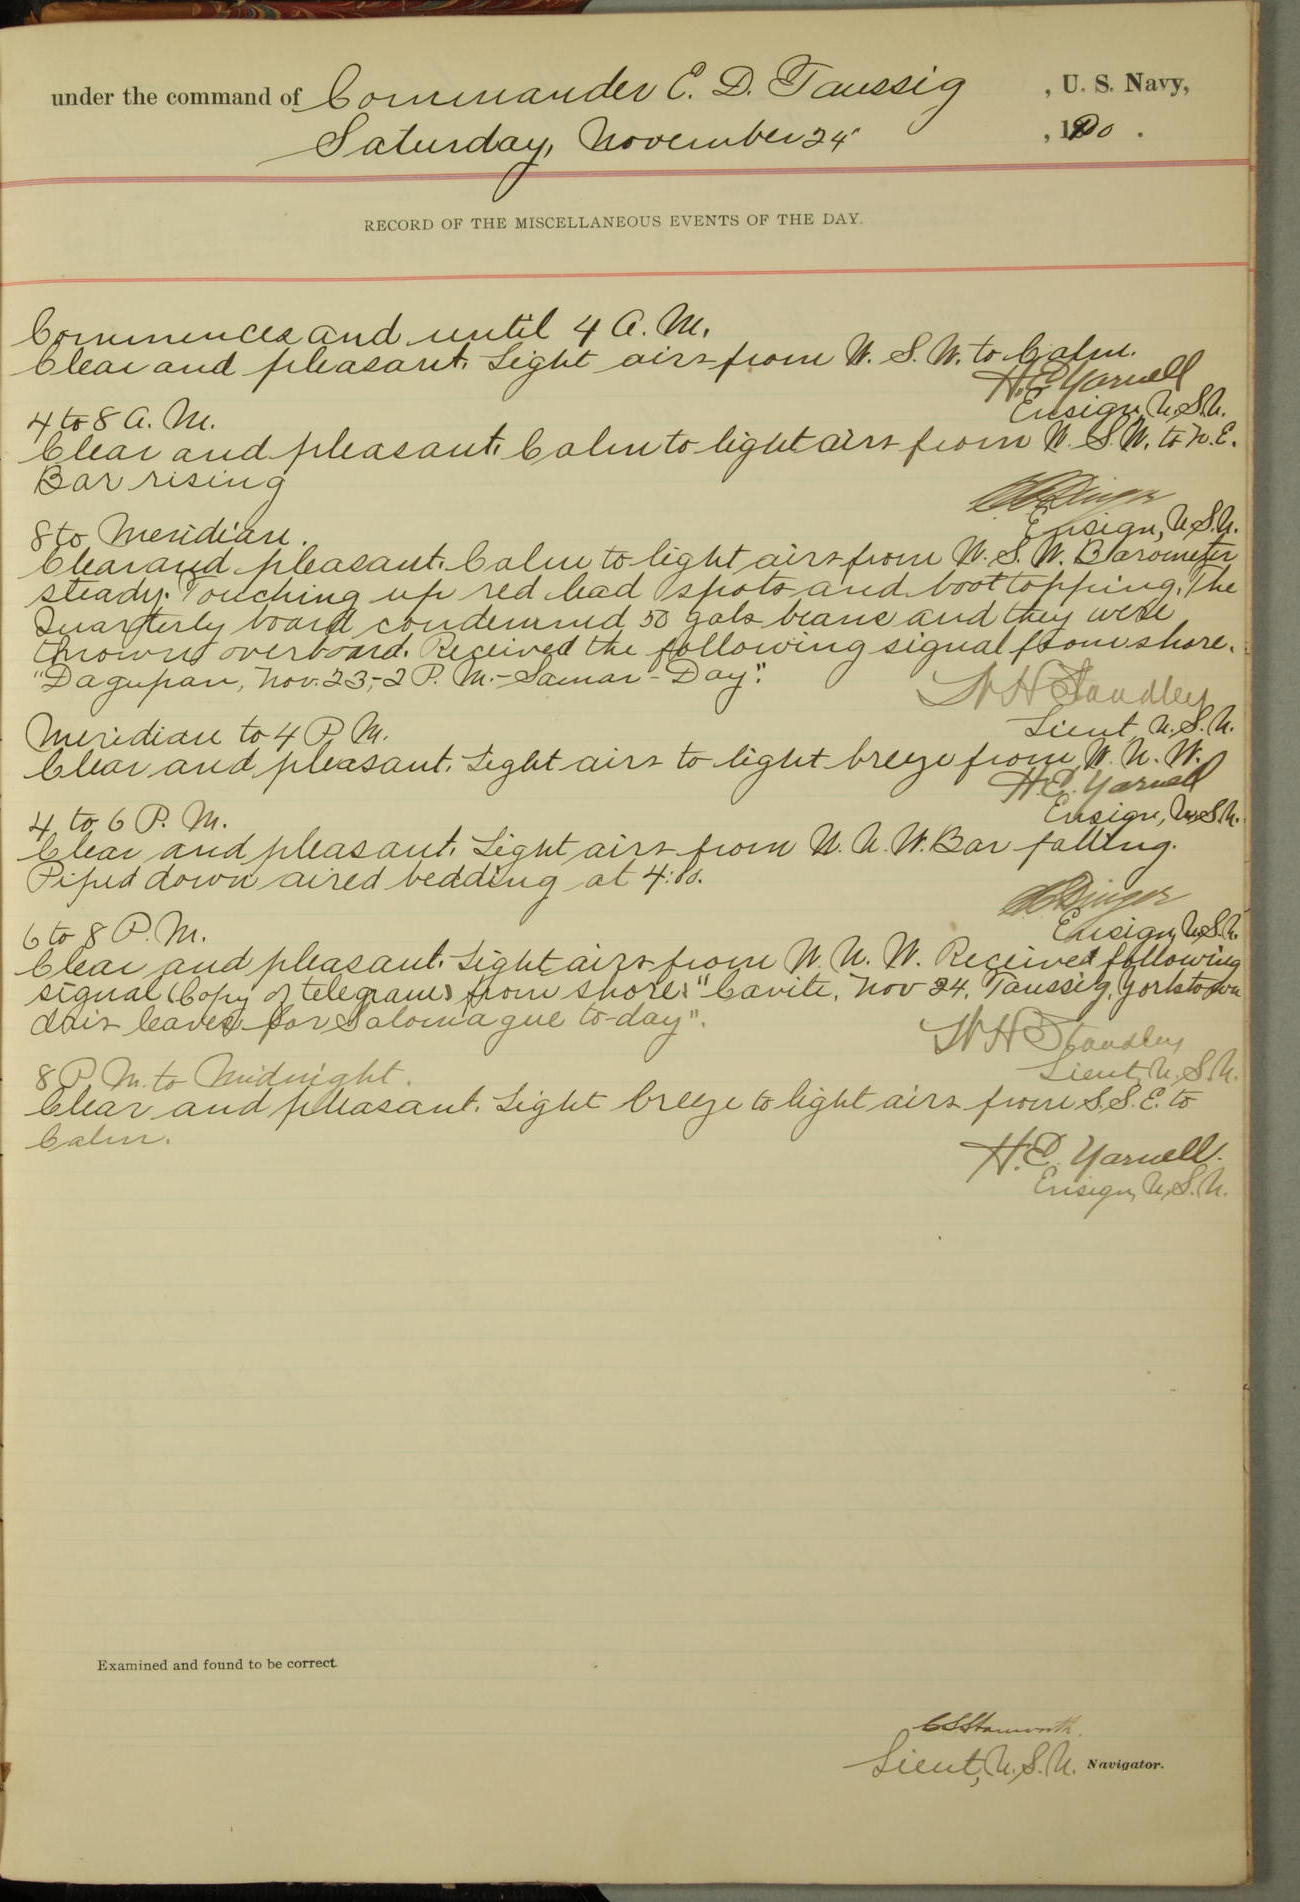 under the command of Commander E. D. Taussig, U. S. Navy,
Saturday, November 24, 1900.
RECORD OF THE MISCELLANEOUS EVENTS OF THE DAY.
Commences and until 4 A. M.
Clear and pleasant. Light airs from W. S. W. to Calm.
H. E. Yarnell
Ensign, U.S.N.
4 to 8 A. M.
Clear and pleasant. Calm to light airs from W. S. W. to N. E.
Bar rising
Dinger
Ensign, U.S.N.
8 to Meridian.
Clear and pleasant. Calm to light airs from W. S. W. Barometer
steady. Touching up red lead spots and boottopping. The
Quarterly board condemned 50 gals beans and they were
thrown overboard. Received the following signal from shore.
"Dagupan, Nov. 23,-2 P. M.-Samar-Day".
W H Standley
Lieut, U.S.N.
Meridian to 4 P. M.
Clear and pleasant. Light airs to light breeze from W. N. W.
H. E. Yarnell
Ensign, U.S.N.
4 to 6 P. M.
Clear and pleasant. Light airs from N. N. W. Bar falling.
Piped down aired bedding at 4:00.
Dinger
Ensign, U.S.N.
6 to 8 P. M.
Clear and pleasant. Light airs from W. N. W. Received following
signal (Copy of telegram) from shore: "Cavite, Nov 24. Taussig, Yorktown
leaves for Salomague to-day".
W H Standley
Lieut, U.S.N.
8 P. M. to Midnight.
Clear and pleasant. Light breeze to light airs from S. S. E. to
Calm.
H. E. Yarnell.
Ensign, U.S.N.
Examined and found to be correct.
Lieut, U. S. N. Navigator.